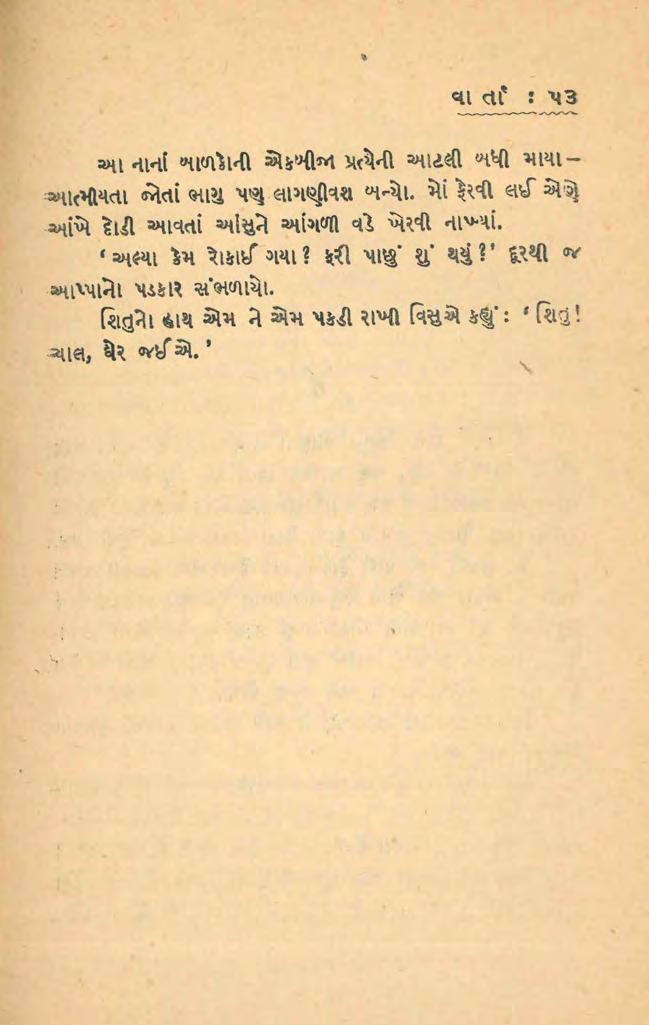 વાર્તા : ૫૩
આ નાનાં બાળકોની એકબીજા પ્રત્યેની આટલી બધી માયા–
આત્મીયતા જોતાં ભાગુ પણ લાગણીવશ બન્યો. મોં ફેરવી લઈ એણે
આંખે દોડી આવતાં આંસુને આંગળી વડે ખેરવી નાખ્યાં.
‘અલ્યા કેમ રોકાઈ ગયા ? ફરી પાછું શું થયું ?’ દૂરથી જ
આપ્પાનો પડકાર સંભળાયો.
શિતુનો હાથ એમ ને એમ પકડી રાખી વિસુએ કહ્યું : ‘શિતુ !
ચાલ, ઘેર જઈએ.’